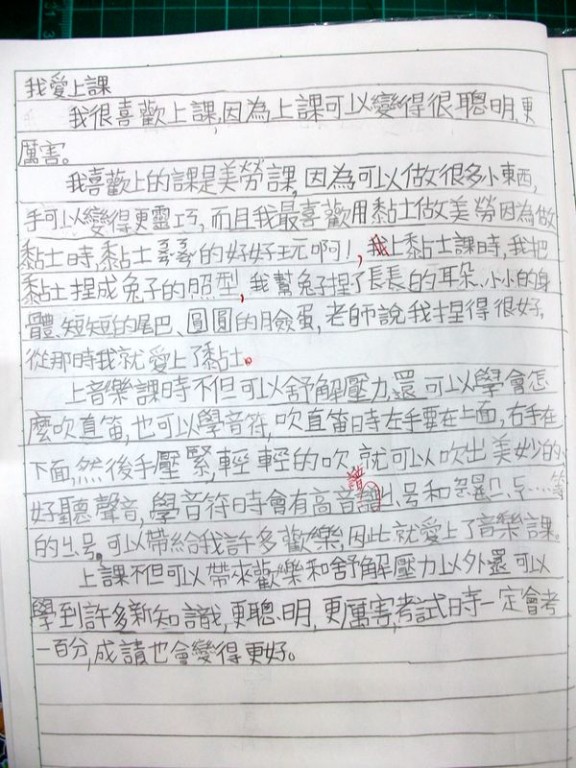 我愛上課
我很喜歡上課,因為上課可以變得很聰明,更
厲害。
我喜歡上的課是美勞課,因為可以做很多小東西,
手可以變得更靈巧,而且我最喜歡用黏土做美勞因為做
黏土時,黏土ㄋㄋ的好好玩啊!,我上黏土課時,我把
黏土捏成兔子的照型,我幫兔子捏了長長的耳朵、小小的身
體、短短的尾巴、圓圓的臉蛋,老師說我捏得很好,
從那時我就愛上了黏土。
上音樂課時不但可以舒解壓力,還可以學會怎
麼吹直笛,也可以學音符,吹直笛時左手要在上面,右手在
下面,然後手壓緊,輕輕的吹,就可以吹出美妙的、
好聽聲音,學音符時會有高音譜ㄐ号和
的ㄐ号,可以帶給我許多歡樂,因此就愛上了音樂課。
上課不但可以帶來歡樂和舒解壓力以外還可以
學到許多新知識,更聰明,更厲害,考試時一定會考
一百分,成請也會變得更好。